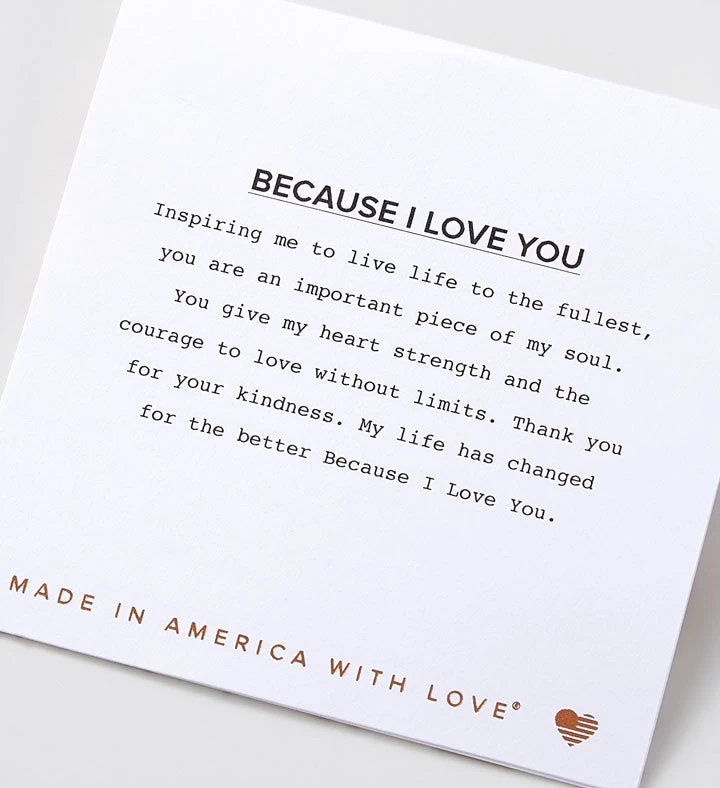 BECAUSE I LOVE YOU
Inspiring me to live life to the fullest,
you are an important piece of my soul.
You give my heart strength and the
courage to love without limits. Thank you
for your kindness. My life has changed
for the better Because I Love You.
MADE IN AMERICA WITH LOVE®